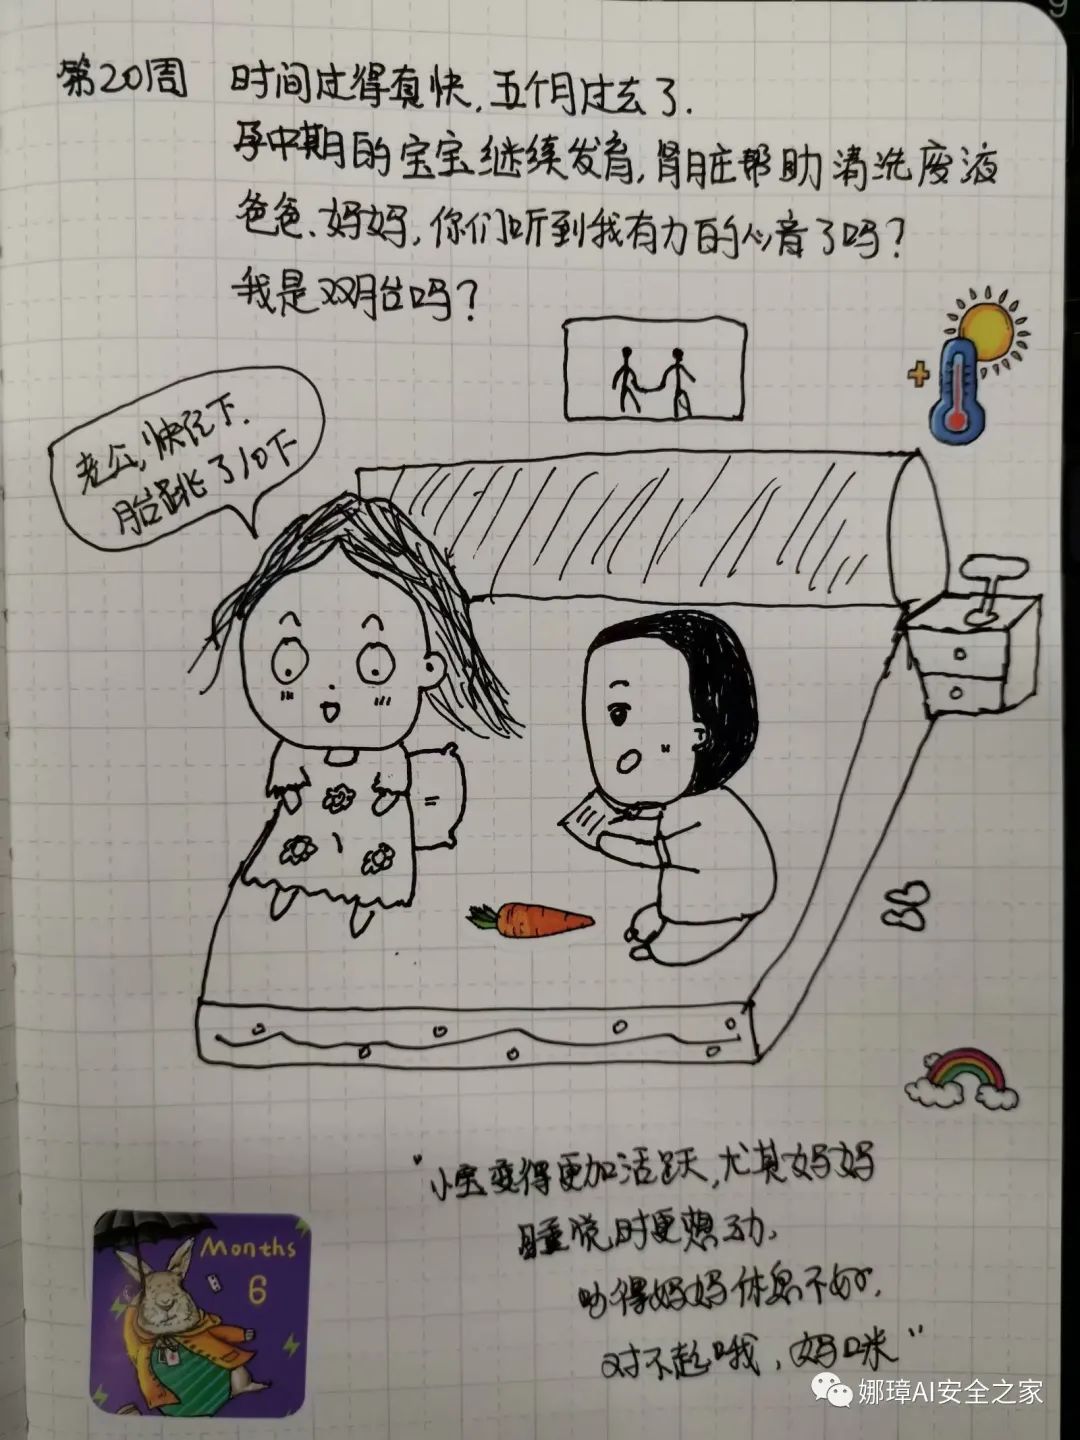 第20周 时间过得真快,五个月过去了.
孕中期的宝宝继续发育,肾脏帮助清洗废液
爸爸、妈妈,你们听到我有力的心音了吗?
我是双胎吗?
老公,快记下.
胎跳了10下
"小宝变得更加活跃,尤其妈妈
睡觉时更想动,
吵得妈妈休息不好,
对不起哦,妈咪"
Months
6
娜璋AI安全之家